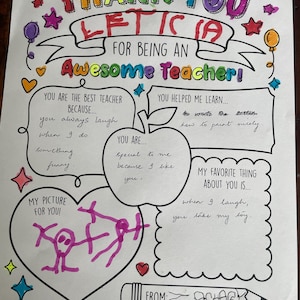 THANK YOU
LETICIA
FOR BEING AN
Awesome Teacher!
YOU ARE THE BEST TEACHER
BECAUSE...
you always laugh
when I do
something
funny
YOU HELPED ME LEARN...
to write the
how to paint nicely
YOU ARE...
Special to me
because I like
you.
MY FAVORITE THING
ABOUT YOU IS...
when I laugh,
you like my joy.
MY PICTURE
FOR YOU!
FROM